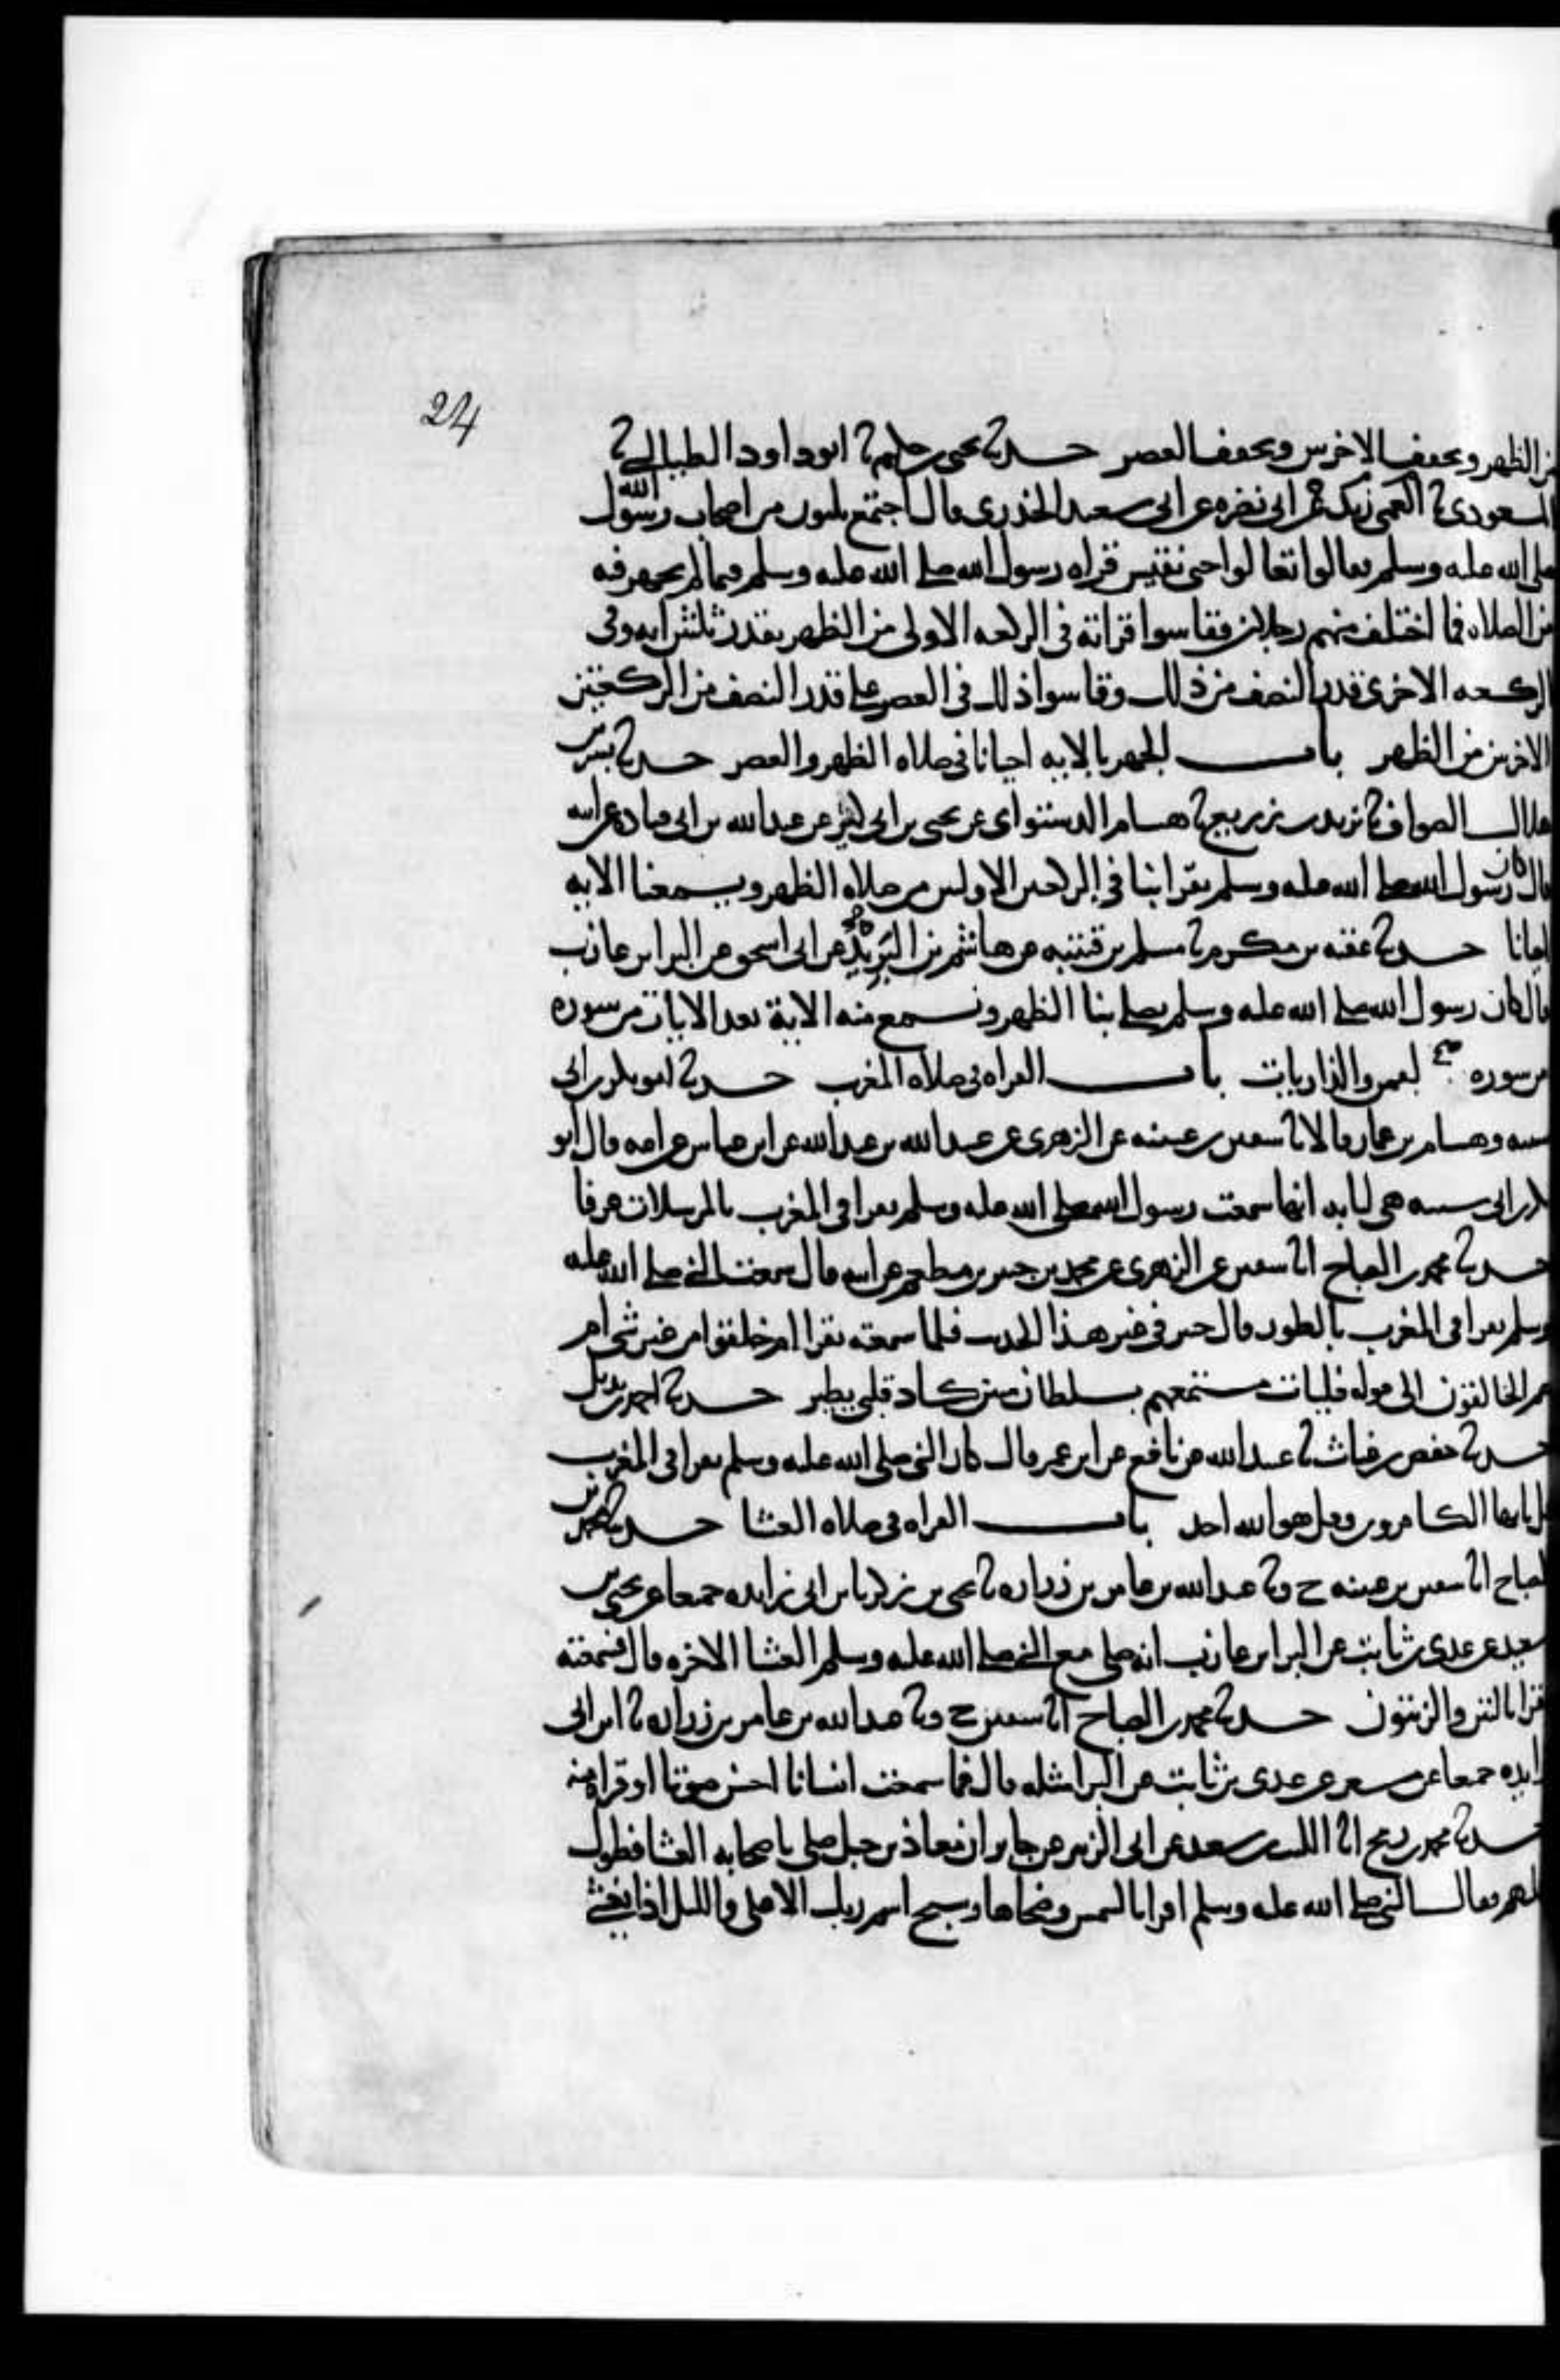 24
من الظهر ويخفف الاخرين ويخفف العصر حدثنا يحيى بن حكيم نا ابو داود الطيالسي نا
المسعودي نا العمى زيد عن ابي نضره عن ابي سعيد الخدري قال اجتمع ثلثون من اصحاب رسول الله
صلى الله عليه وسلم فقالوا تعالوا حتى نقيس قراه رسول الله صلى الله عليه وسلم فيما لم يجهر فيه
من الصلاه فما اختلف منهم رجلان فقاسوا قراته في الركعه الاولى من الظهر بقدر ثلثين ايه وفي
الركعه الاخرى قدر النصف من ذلك وقاسوا ذلك في العصر على قدر النصف من الركعتين
الاخرين من الظهر باب الجهر بالايه احيانا في صلاه الظهر والعصر حدثنا بشر بن
هلال الصواف نا يزيد بن زريع نا هشام الدستواي عن يحيى بن ابي كثير عن عبد الله بن ابي قتاده عن ابيه
قال كان رسول الله صلى الله عليه وسلم يقرا بنا في الركعتين الاوليين من صلاه الظهر ويسمعنا الايه
احيانا حدثنا عقبه بن مكرم نا مسلم بن قتيبه عن هاشم بن البريد عن ابي اسحق عن البرا بن عازب
قال كان رسول الله صلى الله عليه وسلم يصلي بنا الظهر ونسمع منه الاية بعد الايات من سوره
من سوره لقمن والذاريات باب القراه في صلاه المغرب حدثنا ابو بكر بن ابي
شيبه وهشام بن عمار قالا نا سفين بن عيينه عن الزهري عن عبيد الله بن عبد الله عن ابن عباس عن امه قال ابو
بكر بن ابي شيبه هي لبابه انها سمعت رسول الله صلى الله عليه وسلم يقرا في المغرب بالمرسلات عرفا
حدثنا محمد بن الصباح انا سفين عن الزهري عن محمد بن جبير بن مطعم عن ابيه قال سمعت النبي صلى الله عليه
وسلم يقرا في المغرب بالطور قال جبير في غير هذا الحديث فلما سمعته يقرا ام خلقوا من غير شي ام
هم الخالقون الى قوله فليات مستمعهم بسلطان مبين كاد قلبي يطير حدثنا احمد بن بديل
حدثنا حفص بن غياث نا عبيد الله عن نافع عن ابن عمر قال كان النبي صلى الله عليه وسلم يقرا في المغرب
قل يا ايها الكافرون وقل هو الله احد باب القراه في صلاه العشا حدثنا محمد بن
الصباح انا سفين بن عيينه ح ونا عبد الله بن عامر بن زراره نا يحيى بن زكريا بن ابي زايده جميعا عن يحيى بن
سعيد عن عدي بن ثابت عن البرا بن عازب انه صلى مع النبي صلى الله عليه وسلم العشا الاخره قال فسمعته
يقرا بالتين والزيتون حدثنا محمد بن الصباح انا سفين ح ونا عبد الله بن عامر بن زراره نا ابن ابي
زايده جميعا عن مسعر عن عدي بن ثابت عن البرا مثله قال فما سمعت انسانا احسن صوتا او قراه منه
حدثنا محمد بن رمح انا الليث بن سعد عن ابي الزبير عن جابر ان معاذ بن جبل صلى باصحابه العشا فطول
عليهم فقال النبي صلى الله عليه وسلم اقرا بالشمس وضحاها وسبح اسم ربك الاعلى والليل اذا يغشى